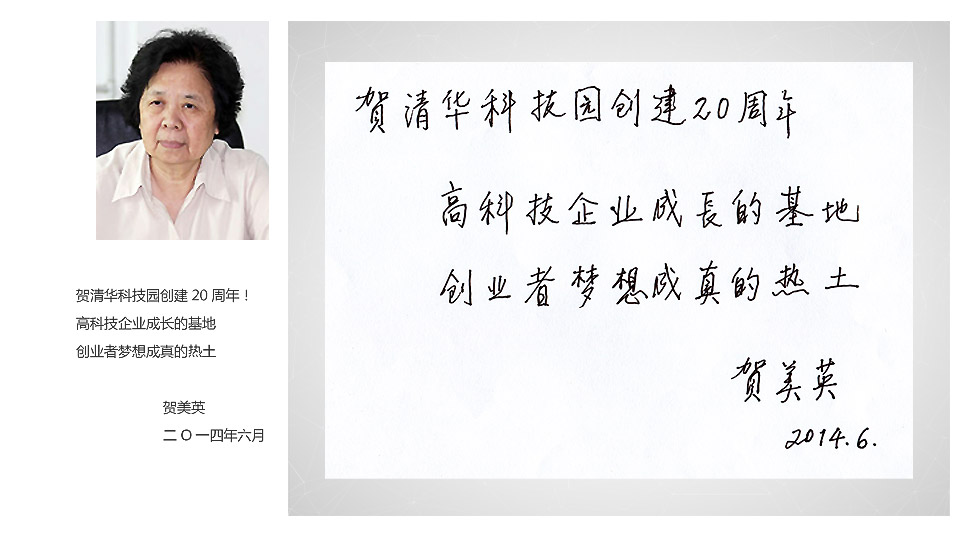 贺清华科技园创建20周年
高科技企业成長的基地
创业者梦想成真的热土
贺美英
2014.6.
贺清华科技园创建 20 周年！
高科技企业成长的基地
创业者梦想成真的热土
贺美英
二 O 一四年六月